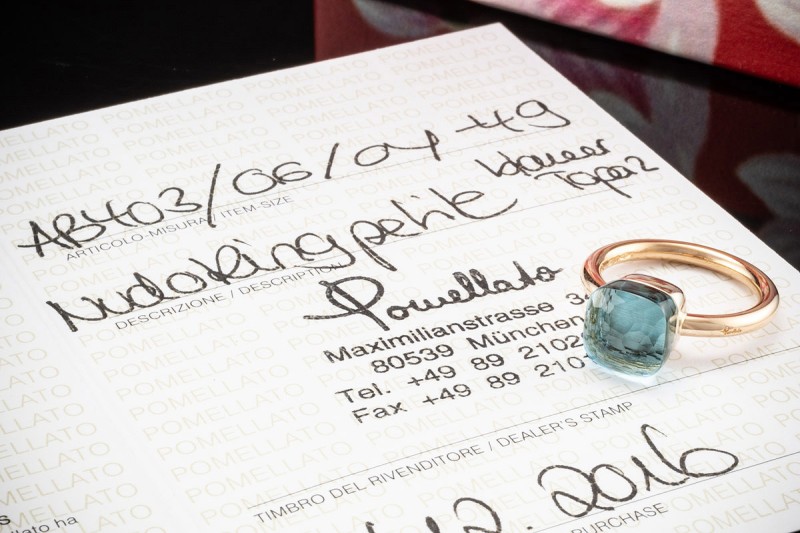 AB403/06/04 -49
blauer
Topas
ARTICOLO-MISURA / ITEM-SIZE
Nudo Ring petite
DESCRIZIONE / DESCRIPTION
Pomellato
Maximilianstrasse
80539 München
Tel. +49 89 2102
Fax +49 89 210
TIMBRO DEL RIVENDITORE / DEALER'S STAMP
12. 2016
PURCHASE
ha
POMELLATO POMELLATO POMELLATO